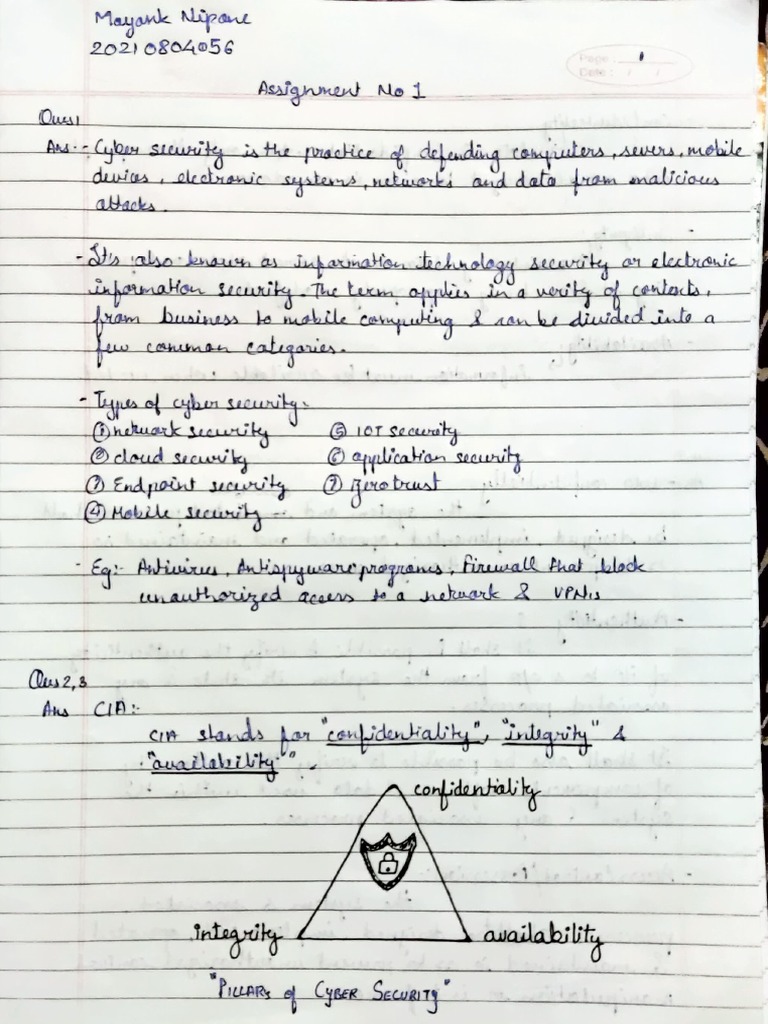 Mayank Nipane
20210804056
Page: 1
Date: / /
Assignment No 1
Ques1
Ans:- Cyber security is the practice of defending computers, severs, mobile
devices, electronic systems, networks and data from malicious
attacks.
- It's also known as information technology security or electronic
information security. The term applies in a verity of contexts,
from business to mobile computing & can be divided into a
few common categories.
- Types of cyber security:-
① network security ⑤ IOT security
② cloud security ⑥ application security
③ Endpoint security ⑦ zero trust
④ Mobile security
- Eg:- Antivirus, Antispyware programs, Firewall that block
unauthorized access to a network & VPNs
Ques 2,3
Ans CIA:-
CIA stands for "confidentiality", "integrity" &
"availability".
confidentiality
integrity availability
"PILLARS of CYBER SECURITY"